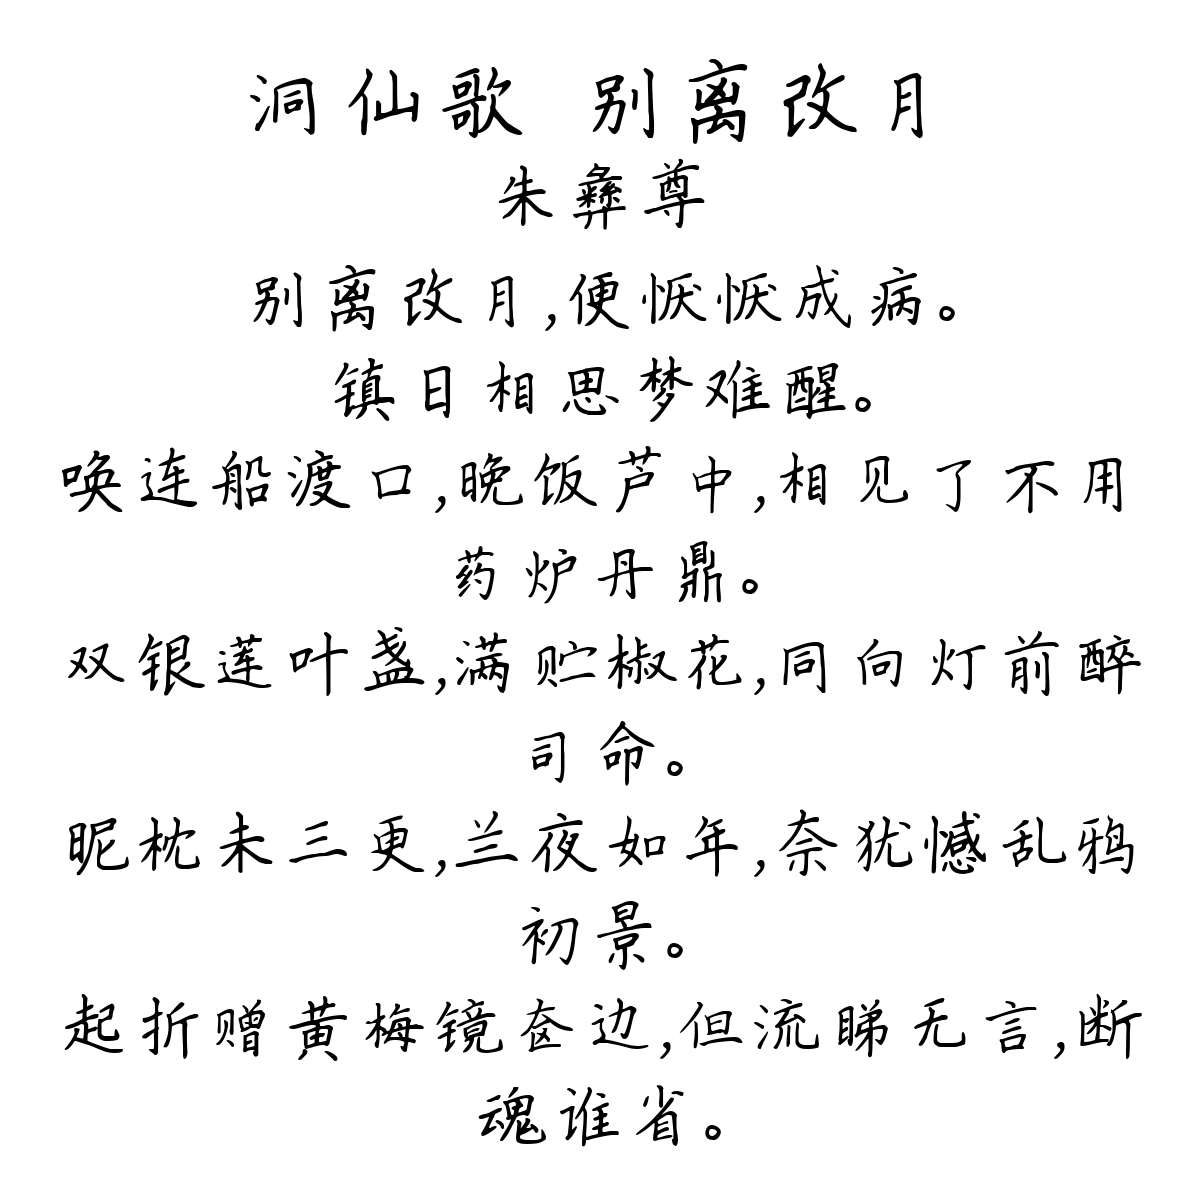 洞仙歌 别离改月
朱彝尊
别离改月,便恹恹成病。
镇日相思梦难醒。
唤连船渡口,晚饭芦中,相见了不用
药炉丹鼎。
双银莲叶盏,满贮椒花,同向灯前醉
司命。
昵枕未三更,兰夜如年,奈犹憾乱鸦
初景。
起折赠黄梅镜奁边,但流睇无言,断
魂谁省。